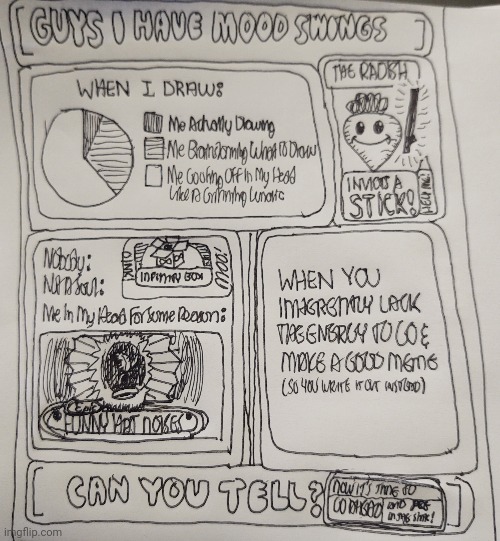 GUYS I HAVE MOOD SWINGS
WHEN I DRAW:
Me Actually Drawing
Me Brainstorming What to Draw
Me Goofing Off in My Head
Like A Grinning Lunatic
THE RADISH
INVENTS A
STICK!
HELP ME!
Nobody:
Not A Soul:
Me In My Head For Some Reason:
INFINITY BOX
FUNNY HAT NOISES
WHEN YOU
INHERENTLY LACK
THE ENERGY TO GO &
MAKE A GOOD MEME
(SO YOU WRITE IT OUT INSTEAD)
CAN YOU TELL?
NOW IT'S TIME TO
GO AHEAD AND
IN THE
imgflip.com